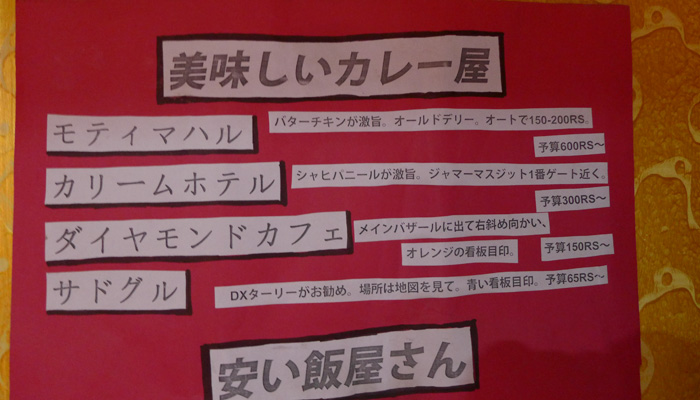 美味しいカレー屋
モティマハル
バターチキンが激旨。オールドデリー。オートで150-200RS。
予算600RS〜
カリームホテル
シャヒパニールが激旨。ジャマーマスジット1番ゲート近く。
予算300RS〜
ダイヤモンドカフェ
メインバザールに出て右斜め向かい、
オレンジの看板目印。
予算150RS〜
サドグル
DXターリーがお勧め。場所は地図を見て。青い看板目印。予算65RS〜
安い飯屋さん